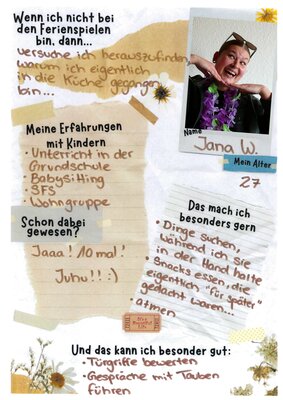 Wenn ich nicht bei
den Ferienspielen
bin, dann...
versuche ich herauszufinden,
warum ich eigentlich
in die Küche gegangen
bin...
Name
Jana W.
Mein Alter
27
Meine Erfahrungen
mit Kindern
• Unterricht in der
Grundschule
• Babysitting
• SFS
• Wohngruppe
Schon dabei
gewesen?
Jaaa! 10 mal!
Juhu!! :)
Das mach ich
besonders gern
• Dinge suchen,
während ich sie
in der Hand halte
• Snacks essen, die
eigentlich "für später"
gedacht waren...
• atmen
Und das kann ich besonder gut:
• Türgriffe bewerten
• Gespräche mit Tauben
führen